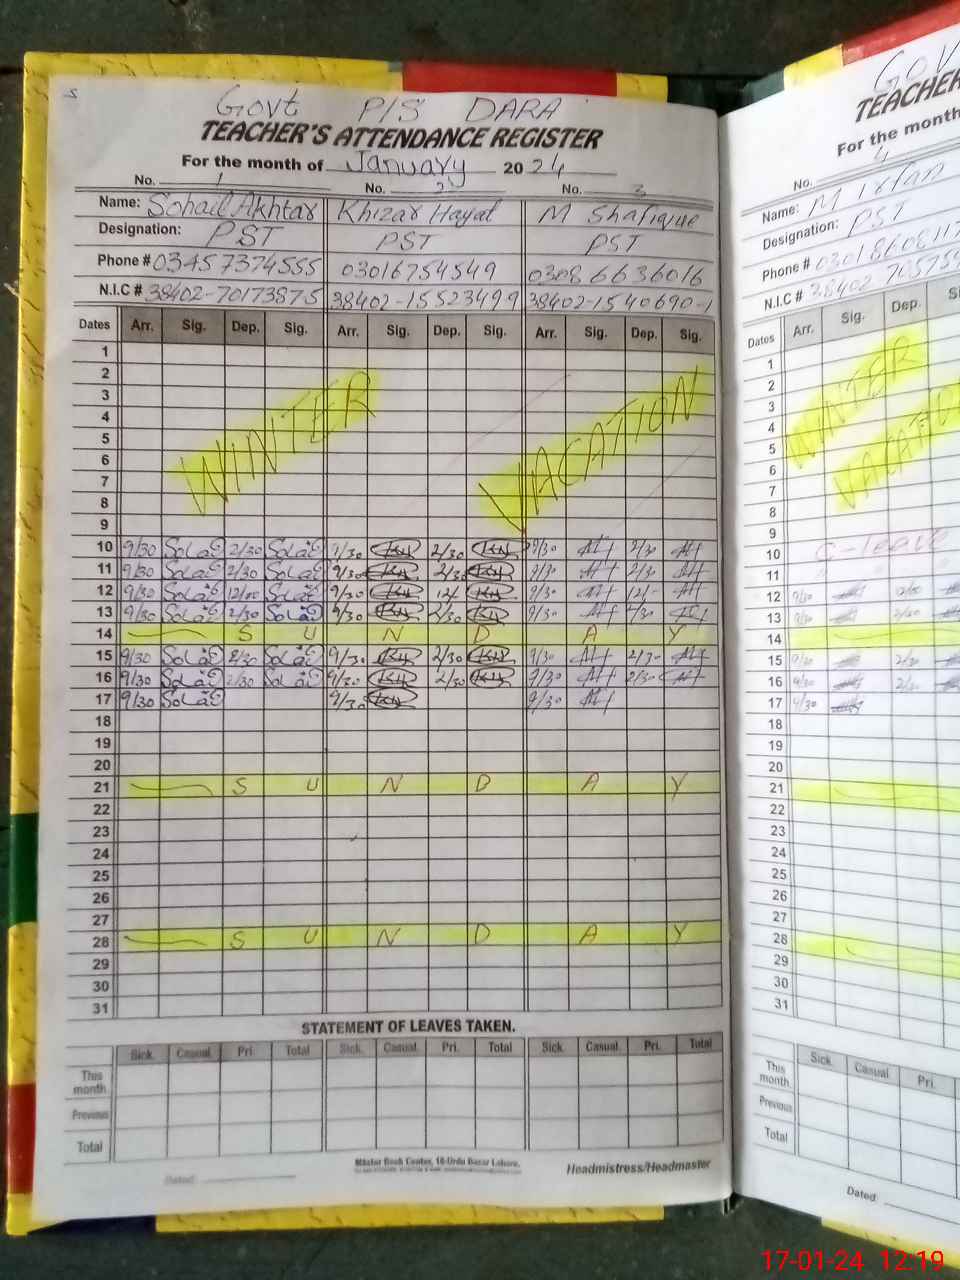 Govt P/S DARA
TEACHER'S ATTENDANCE REGISTER
For the month of January 2024
No. 1 No. 2 No. 3
Name: Sohail Akhtar Khizar Hayat M Shafique
Designation: PST PST PST
Phone # 03457374555 03016754549 03086636016
N.I.C # 38402-70173875 38402-15523499 38402-1540690-1
Dates Arr. Sig. Dep. Sig. Arr. Sig. Dep. Sig. Arr. Sig. Dep. Sig.
1
2
3
4
5
6
7
8
9
WINTER VACATION
10 9/30 2/30 9/30 2/30 9/30 2/30
11 9/30 2/30 9/30 2/30 9/30 2/30
12 9/30 12/00 9/30 12/ 9/30 12/-
13 9/30 2/30 9/30 2/30 9/30 2/30
14 S U N D A Y
15 9/30 2/30 9/30 2/30 9/30 2/3-
16 9/30 2/30 9/30 2/30 9/30 2/30
17 9/30 9/30 9/30
18
19
20
21 S U N D A Y
22
23
24
25
26
27
28 S U N D A Y
29
30
31
STATEMENT OF LEAVES TAKEN.
Sick. Casual. Pri. Total Sick. Casual. Pri. Total Sick. Casual. Pri. Total
This month.
Previous
Total
Master Book Center, 16-Urdu Bazar Lahore.
Dated:
Headmistress/Headmaster
GOV
TEACHER
For the month
No. 4
Name: M Irfan
Designation: PST
Phone #
N.I.C # 38402
Dates Arr. Sig. Dep.
1
2
3
4
5
6
7
8
9
WINTER
VACATIO
10 C-leave
11
12 9/30 12/00
13 9/30 2/30
14
15 9/30 2/30
16 9/30 2/30
17 9/30
18
19
20
21
22
23
24
25
26
27
28
29
30
31
Sick. Casual. Pri.
This month.
Previous
Total
Dated:
17-01-24 12:19